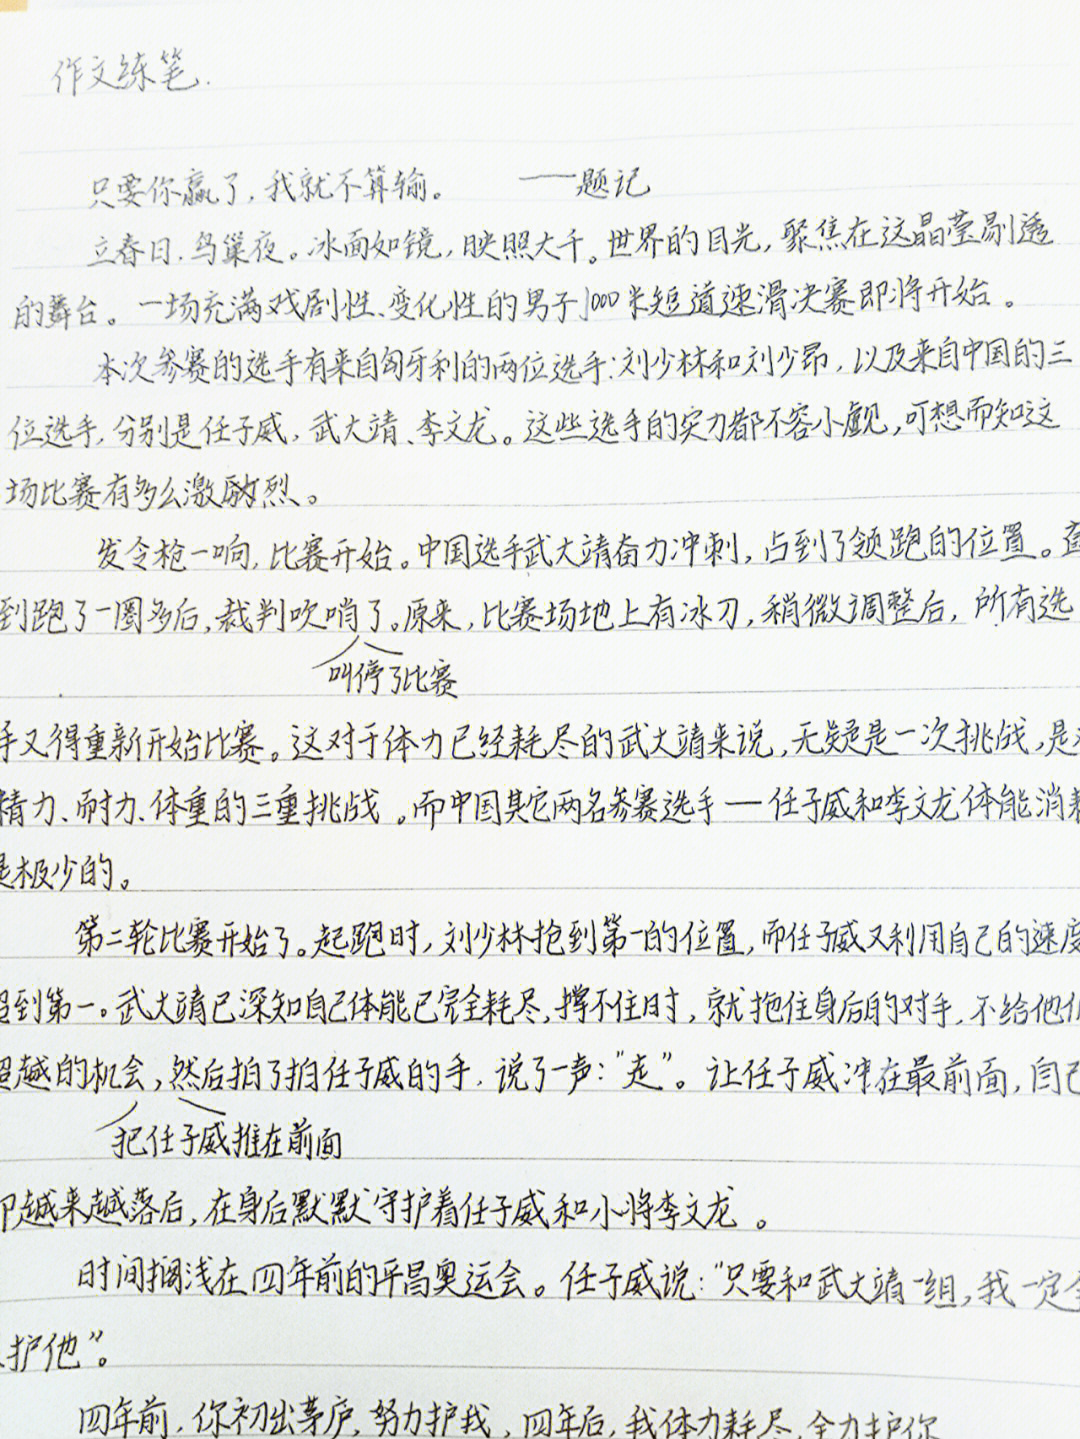 作文练笔.
只要你赢了,我就不算输。 ——题记
立春日.鸟巢夜。冰面如镜,映照大千。世界的目光,聚焦在这晶莹剔透
的舞台。一场充满戏剧性、变化性的男子1000米短道速滑决赛即将开始。
本次参赛的选手有来自匈牙利的两位选手:刘少林和刘少昂,以及来自中国的三
位选手,分别是任子威,武大靖、李文龙。这些选手的实力都不容小觑,可想而知这
场比赛有多么激烈。
发令枪一响,比赛开始。中国选手武大靖奋力冲刺,占到了领跑的位置。直
到跑了一圈多后,裁判吹哨了。原来,比赛场地上有冰刀,稍微调整后,所有选
叫停了比赛
手又得重新开始比赛。这对于体力已经耗尽的武大靖来说,无疑是一次挑战,是
精力、耐力、体重的三重挑战。而中国其它两名参赛选手—任子威和李文龙体能消耗
是极少的。
第二轮比赛开始了。起跑时,刘少林抢到第一的位置,而任子威又利用自己的速度
超到第一。武大靖已深知自己体能已完全耗尽,撑不住时,就拖住身后的对手,不给他们
超越的机会,然后拍了拍任子威的手.说了一声:“走”。让任子威冲在最前面,自己
把任子威推在前面
却越来越落后,在身后默默守护着任子威和小将李文龙。
时间搁浅在四年前的平昌奥运会。任子威说:“只要和武大靖一组,我一定
护他”。
四年前,你初出茅庐,努力护我,四年后,我体力耗尽,全力护你